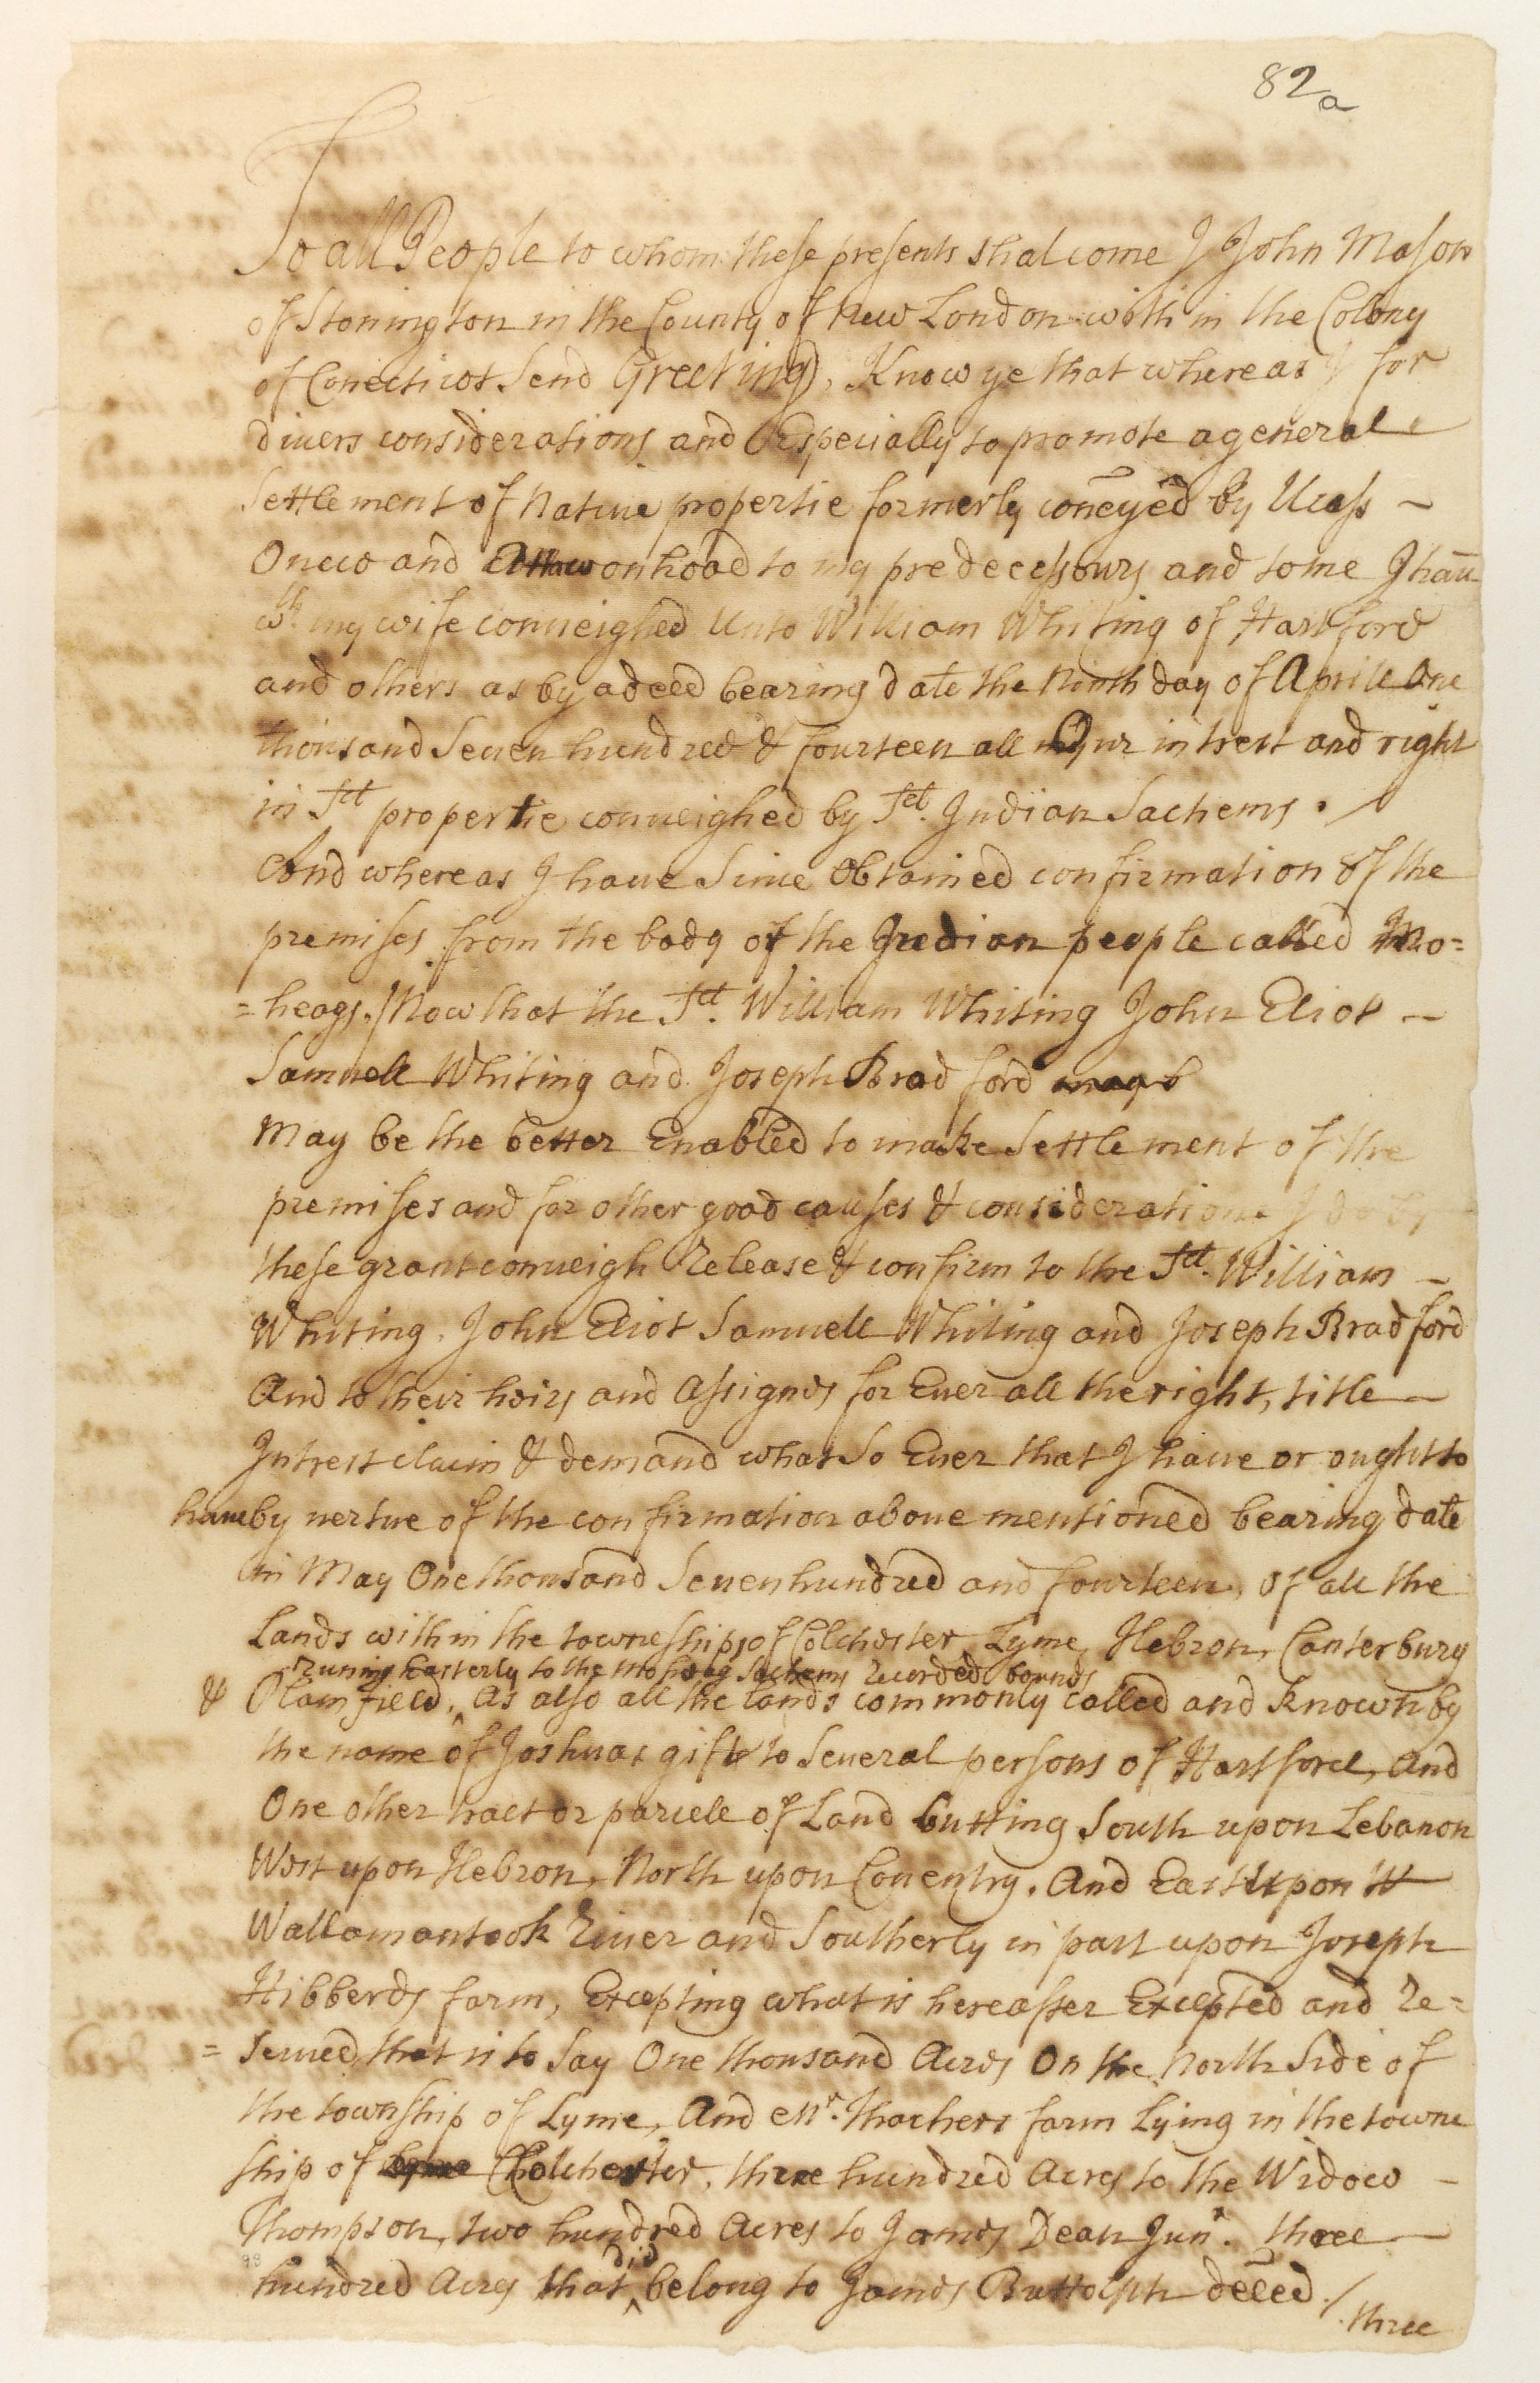 82a
To all People to whom these presents shal come I John Mason
of Stonington in the County of New London with in the Colony
of Conecticot Send Greeting, Know ye that whereas I for
divers considerations and Especially to promote a general
Settlement of Native propertie formerly coneyed by Ucass –
Oneco and Attawonhood to my predecessours and some I hau
wth my wife conveighed Unto William Whiting of Hartford
and others as by a deed bearing date the Ninth day of Aprill One
thousand Seven hundred & fourteen all Our intrest and right
in sd propertie conveighed by sd Indian Sachems.
And whereas I have Since Obtained confirmation of the
premises from the body of the Indian people called Mo=
=heags. Now that the sd. William Whiting John Eliot –
Samuell Whiting and Joseph Bradford may b
May be the better Enabled to make Settlement of the
premises and for other good causes & considerations I do by
these grant conveigh Release & confirm to the sd. William –
Whiting, John Eliot Samuell Whiting and Joseph Bradford
And to their heirs and Assignes for Ever all the right, title –
Intrest claim & demand what So Ever that I have or ought to
have by vertue of the confirmation above mentioned bearing date
in May One thousand Seven hundred and fourteen, of all the
Lands within the towneships of Colchester, Lyme, Hebron, Canterbury
runing Easterly to the Moheag Sachems Recorded bounds
& Plainfield, ^ As also all the lands commonly called and known by
the name of Joshuas gift to Several persons of Hartford, And
One other tract or parcell of Land butting South upon Lebanon
West upon Hebron, North upon Coventry, And East upon
Wallamantock River and Southerly in part upon Joseph
Hibberds farm, Excepting what is hereafter Excepted and Re=
=served, that is to Say One thousand Acres On the North Side of
the township of Lyme, And Mr. Thachers farm Lying in the towne
ship of Lyme Cholchester, three hundred Acres to the Widow –
Thompson, two hundred Acres to James Dean Junr. three –
98
did
hundred Acres that ^ belong to James Buttolph deced./
three